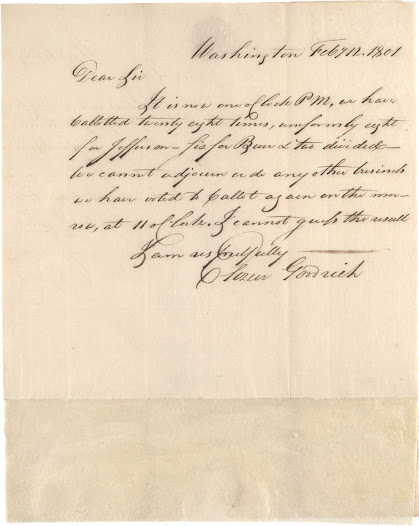 Washington Feby 12. 1801
Dear Sir
It is now one o'clock P.M, we have
balletted twenty eight times, uniformly eight
for Jefferson - six for Burr & two divided -
We cannot adjourn or do any other business
we have voted to ballet again on the mor-
row, at 11 o'Clock. I cannot guess the result
I am respectfully
Elizur Goodrich